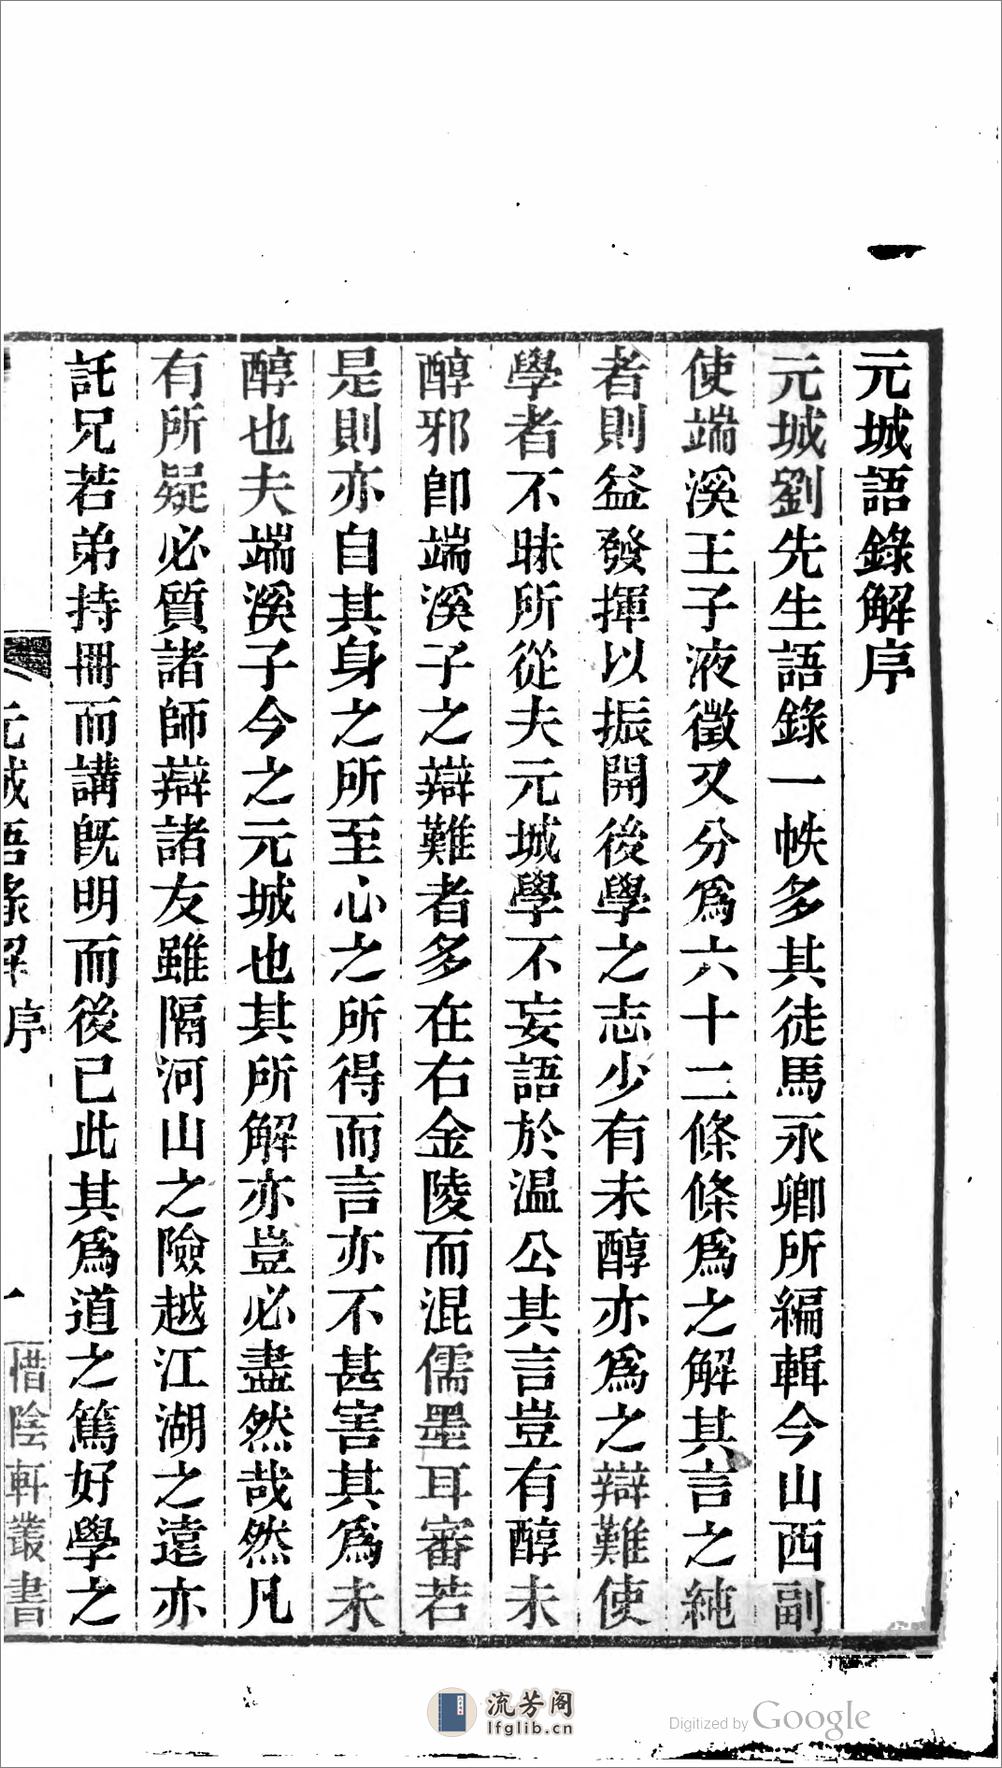 元城語錄解序
元城劉先生語錄一帙多其徒馬永卿所編輯今山西副
使端溪王子液徵又分爲六十二條條爲之解其言之純
者則益發揮以振開後學之志少有未醇亦爲之辯難使
學者不昧所從夫元城學不妄語於温公其言豈有醇未
醇邪卽端溪子之辯難者多在右金陵而混儒墨耳審若
是則亦自其身之所至心之所得而言亦不甚害其爲未
醇也夫端溪子今之元城也其所解亦豈必盡然哉然凡
有所疑必質諸師辯諸友雖隔河山之險越江湖之遠亦
託兄若弟持冊而講旣明而後已此其爲道之篤好學之
元城語彔解序
一
惜陰軒叢書
流芳阁
lfglib.cn
Digitized by Google